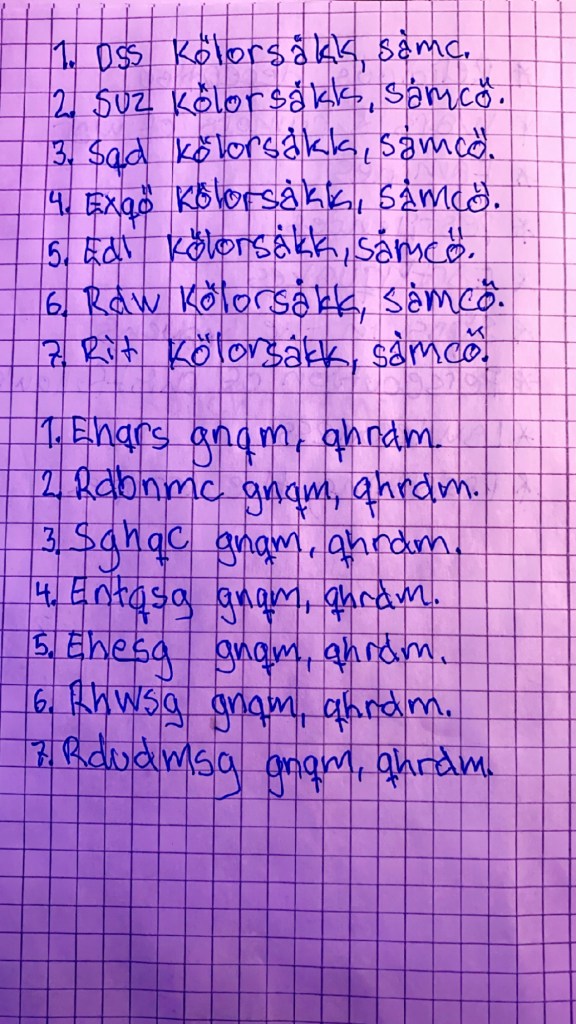 1. Dss Kölorsåkk, såmc.
2. Suz Kölorsåkk, såmcö.
3. Sqd Kölorsåkk, såmcö.
4. Exqö Kölorsåkk, såmcö.
5. Edl Kölorsåkk, såmcö.
6. Rdw Kölorsåkk, såmcö.
7. Rit Kölorsåkk, såmcö.
1. Ehqrs gnqm, qhrdm.
2. Rdbnmc gnqm, qhrdm.
3. Sghqc gnqm, qhrdm.
4. Entqsg gnqm, qhrdm.
5. Ehesg gnqm, qhrdm.
6. Rhwsg gnqm, qhrdm.
7. Rdudmsg gnqm, qhrdm.